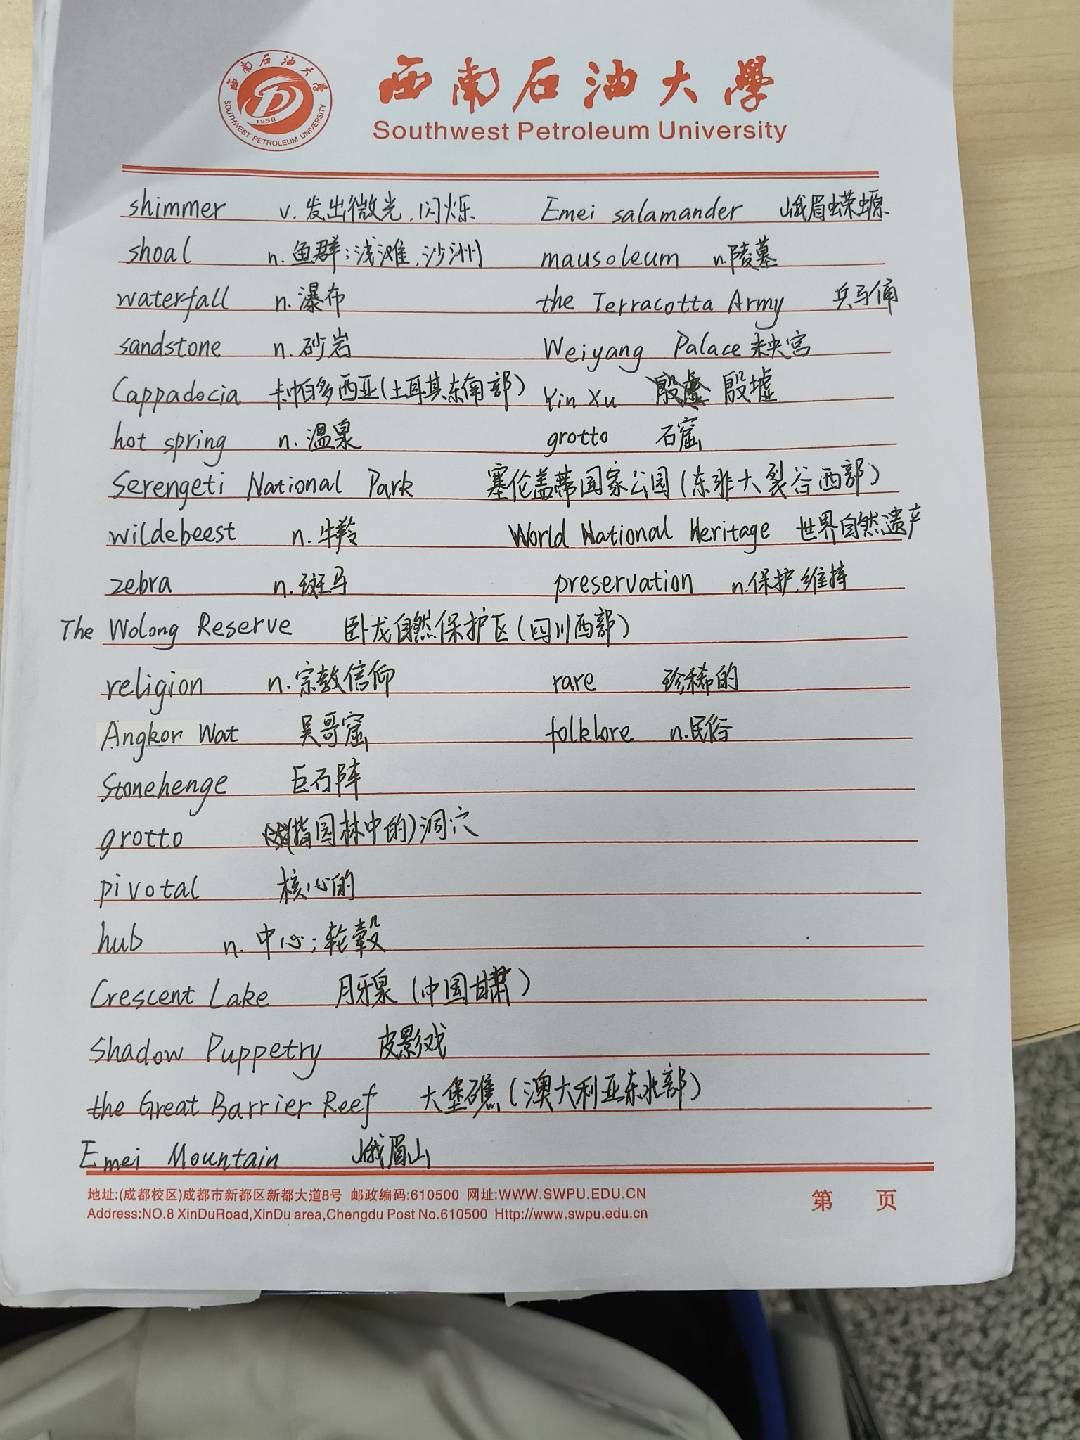 西南石油大学
SOUTHWEST PETROLEUM UNIVERSITY
1958
西南石油大學
Southwest Petroleum University
shimmer v. 发出微光,闪烁 Emei salamander 峨眉蝾螈
shoal n. 鱼群;浅滩,沙洲 mausoleum n.陵墓
waterfall n.瀑布 the Terracotta Army 兵马俑
sandstone n.砂岩 Weiyang Palace 未央宫
Cappadocia 卡帕多西亚(土耳其东南部) Yin Xu 殷墟
hot spring n.温泉 grotto 石窟
Serengeti National Park 塞伦盖蒂国家公园(东非大裂谷西部)
wildebeest n.牛羚 World National Heritage 世界自然遗产
zebra n.斑马 preservation n.保护,维持
The Wolong Reserve 卧龙自然保护区(四川西部)
religion n.宗教信仰 rare 珍稀的
Angkor Wat 吴哥窟 folklore n.民俗
Stonehenge 巨石阵
grotto (指园林中的)洞穴
pivotal 核心的
hub n. 中心;轮毂
Crescent Lake 月牙泉(中国甘肃)
Shadow Puppetry 皮影戏
the Great Barrier Reef 大堡礁(澳大利亚东北部)
Emei Mountain 峨眉山
地址:(成都校区)成都市新都区新都大道8号 邮政编码:610500 网址:WWW.SWPU.EDU.CN
Address:NO.8 XinDuRoad,XinDu area,Chengdu Post No.610500 Http://www.swpu.edu.cn
第 页